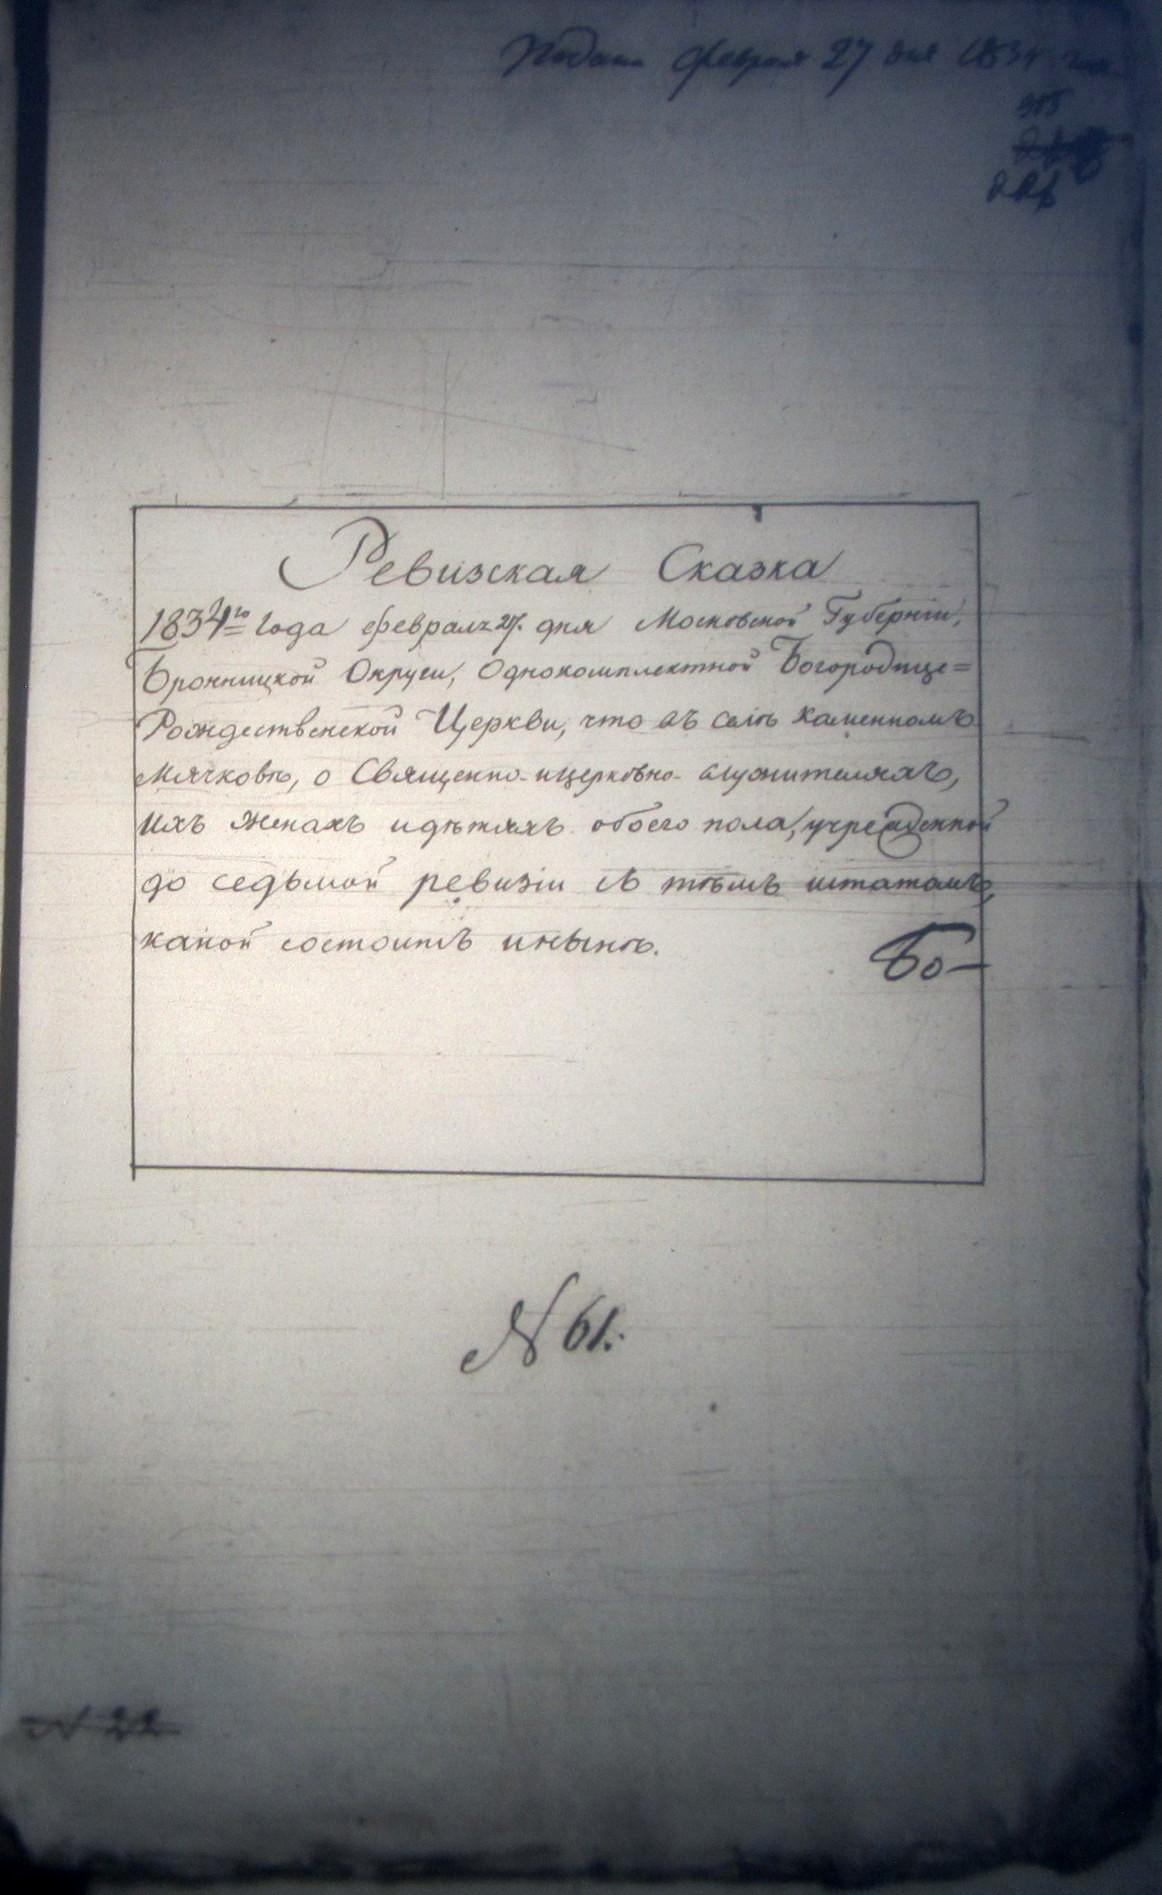 Подана февраля 27 дня 1834 года
Ревизская Сказка
1834го года февраля 27. дня Московской Губерніи,
Бронницкой Округи, Однокомплектной Богородице=
Рождественской Церкви, что въ селѣ Каменномъ
Мячковѣ, о Священно- и церковно- служителяхъ,
ихъ женахъ и дѣтяхъ обоего пола, учрежденной
до седьмой ревизіи съ тѣмъ штатомъ,
какой состоитъ и нынѣ.
Бо-
N 61.
N 22